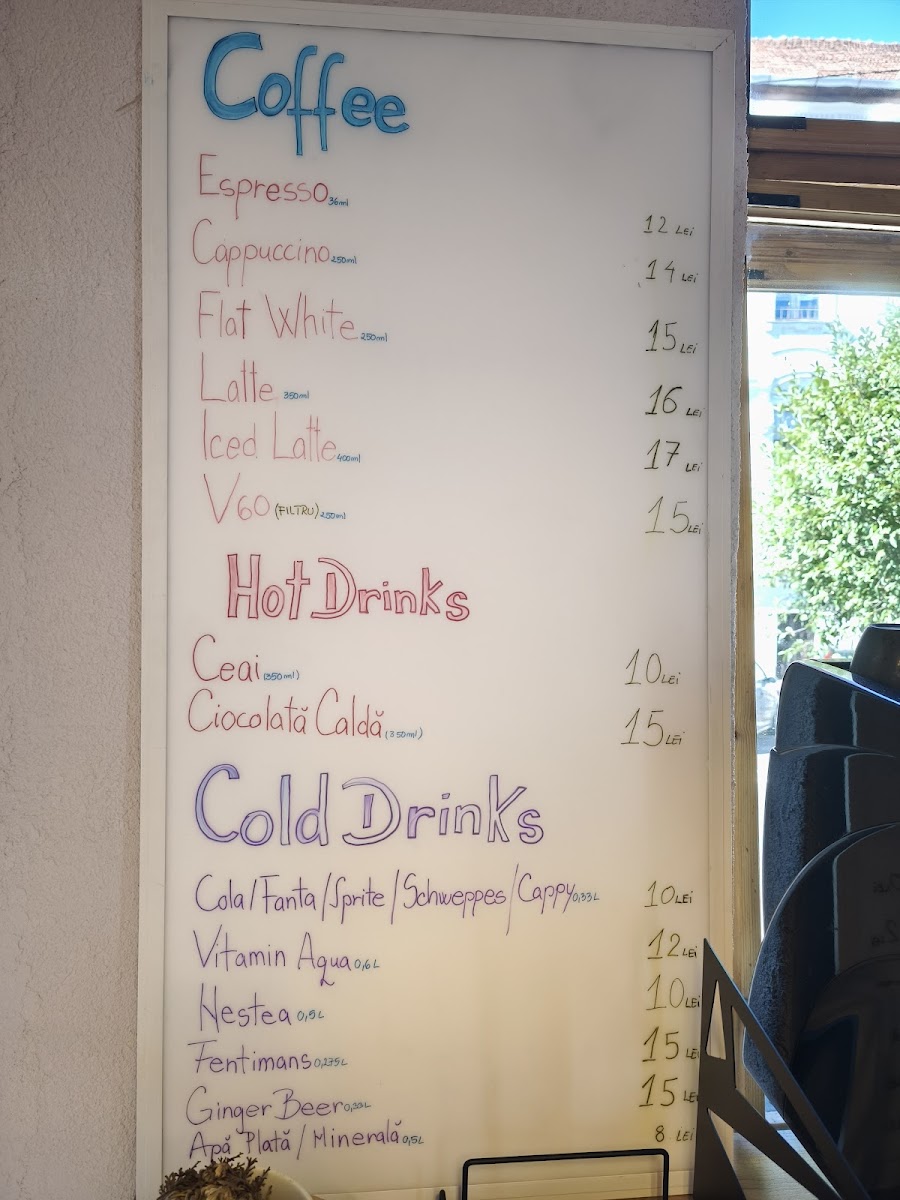 Coffee
Espresso 36ml 12 LEI
Cappuccino 250ml 14 LEI
Flat White 250ml 15 LEI
Latte 350ml 16 LEI
Iced Latte 400ml 17 LEI
V60 (FILTRU) 250ml 15 LEI
Hot Drinks
Ceai (350ml) 10 LEI
Ciocolată Caldă (350ml) 15 LEI
Cold Drinks
Cola/Fanta/Sprite/Schweppes/Cappy 0,33L 10 LEI
Vitamin Aqua 0,6L 12 LEI
Nestea 0,5L 10 LEI
Fentimans 0,275L 15 LEI
Ginger Beer 0,33L 15 LEI
Apă Plată/Minerală 0,5L 8 LEI